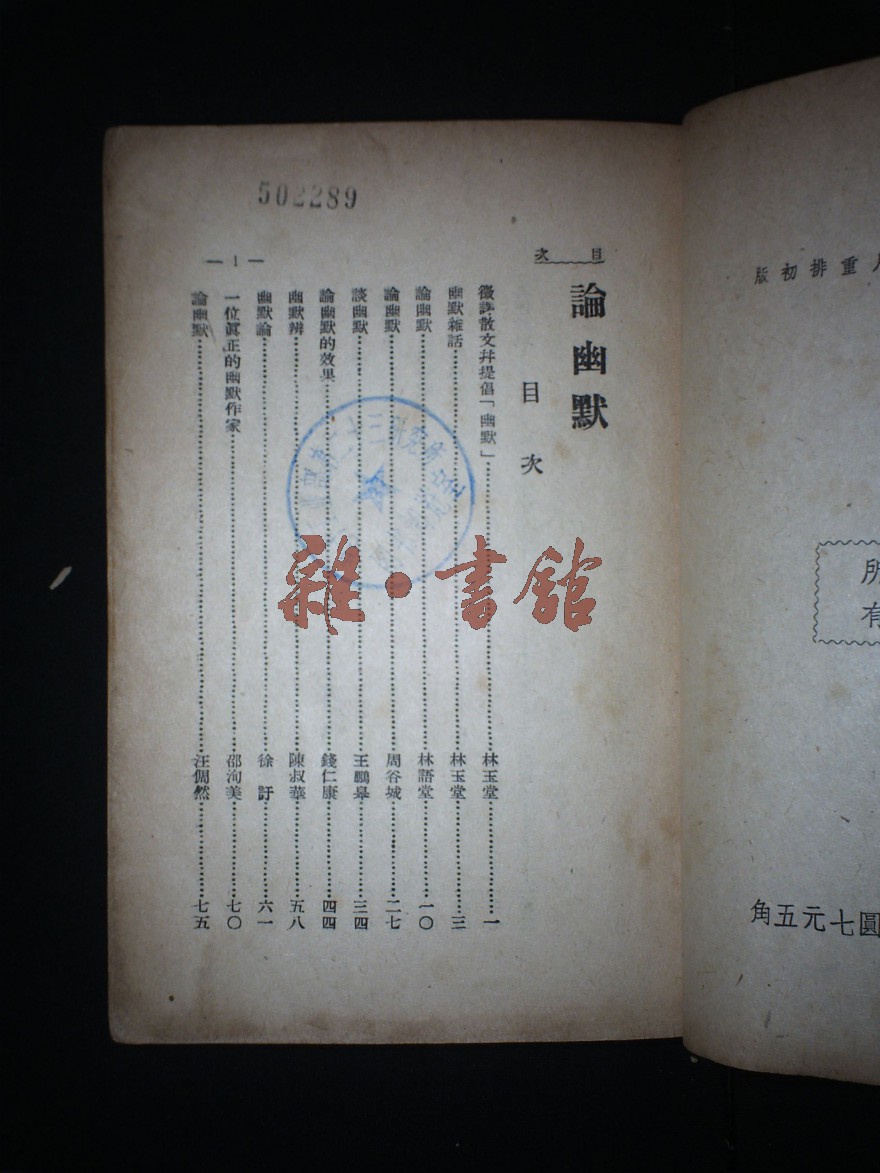 版初排重
所
有
角五元七圓
502289
目 次
論幽默
目次
徵譯散文幷提倡「幽默」……林玉堂……一
幽默雜話……林玉堂……三
論幽默……林語堂……一〇
論幽默……周谷城……二七
談幽默……王鵬皋……三四
論幽默的效果……錢仁康……四四
幽默辨……陳叔華……五八
幽默論……徐訏……六一
一位眞正的幽默作家……邵洵美……七〇
論幽默……汪倜然……七五
— 1 —
雜·書館